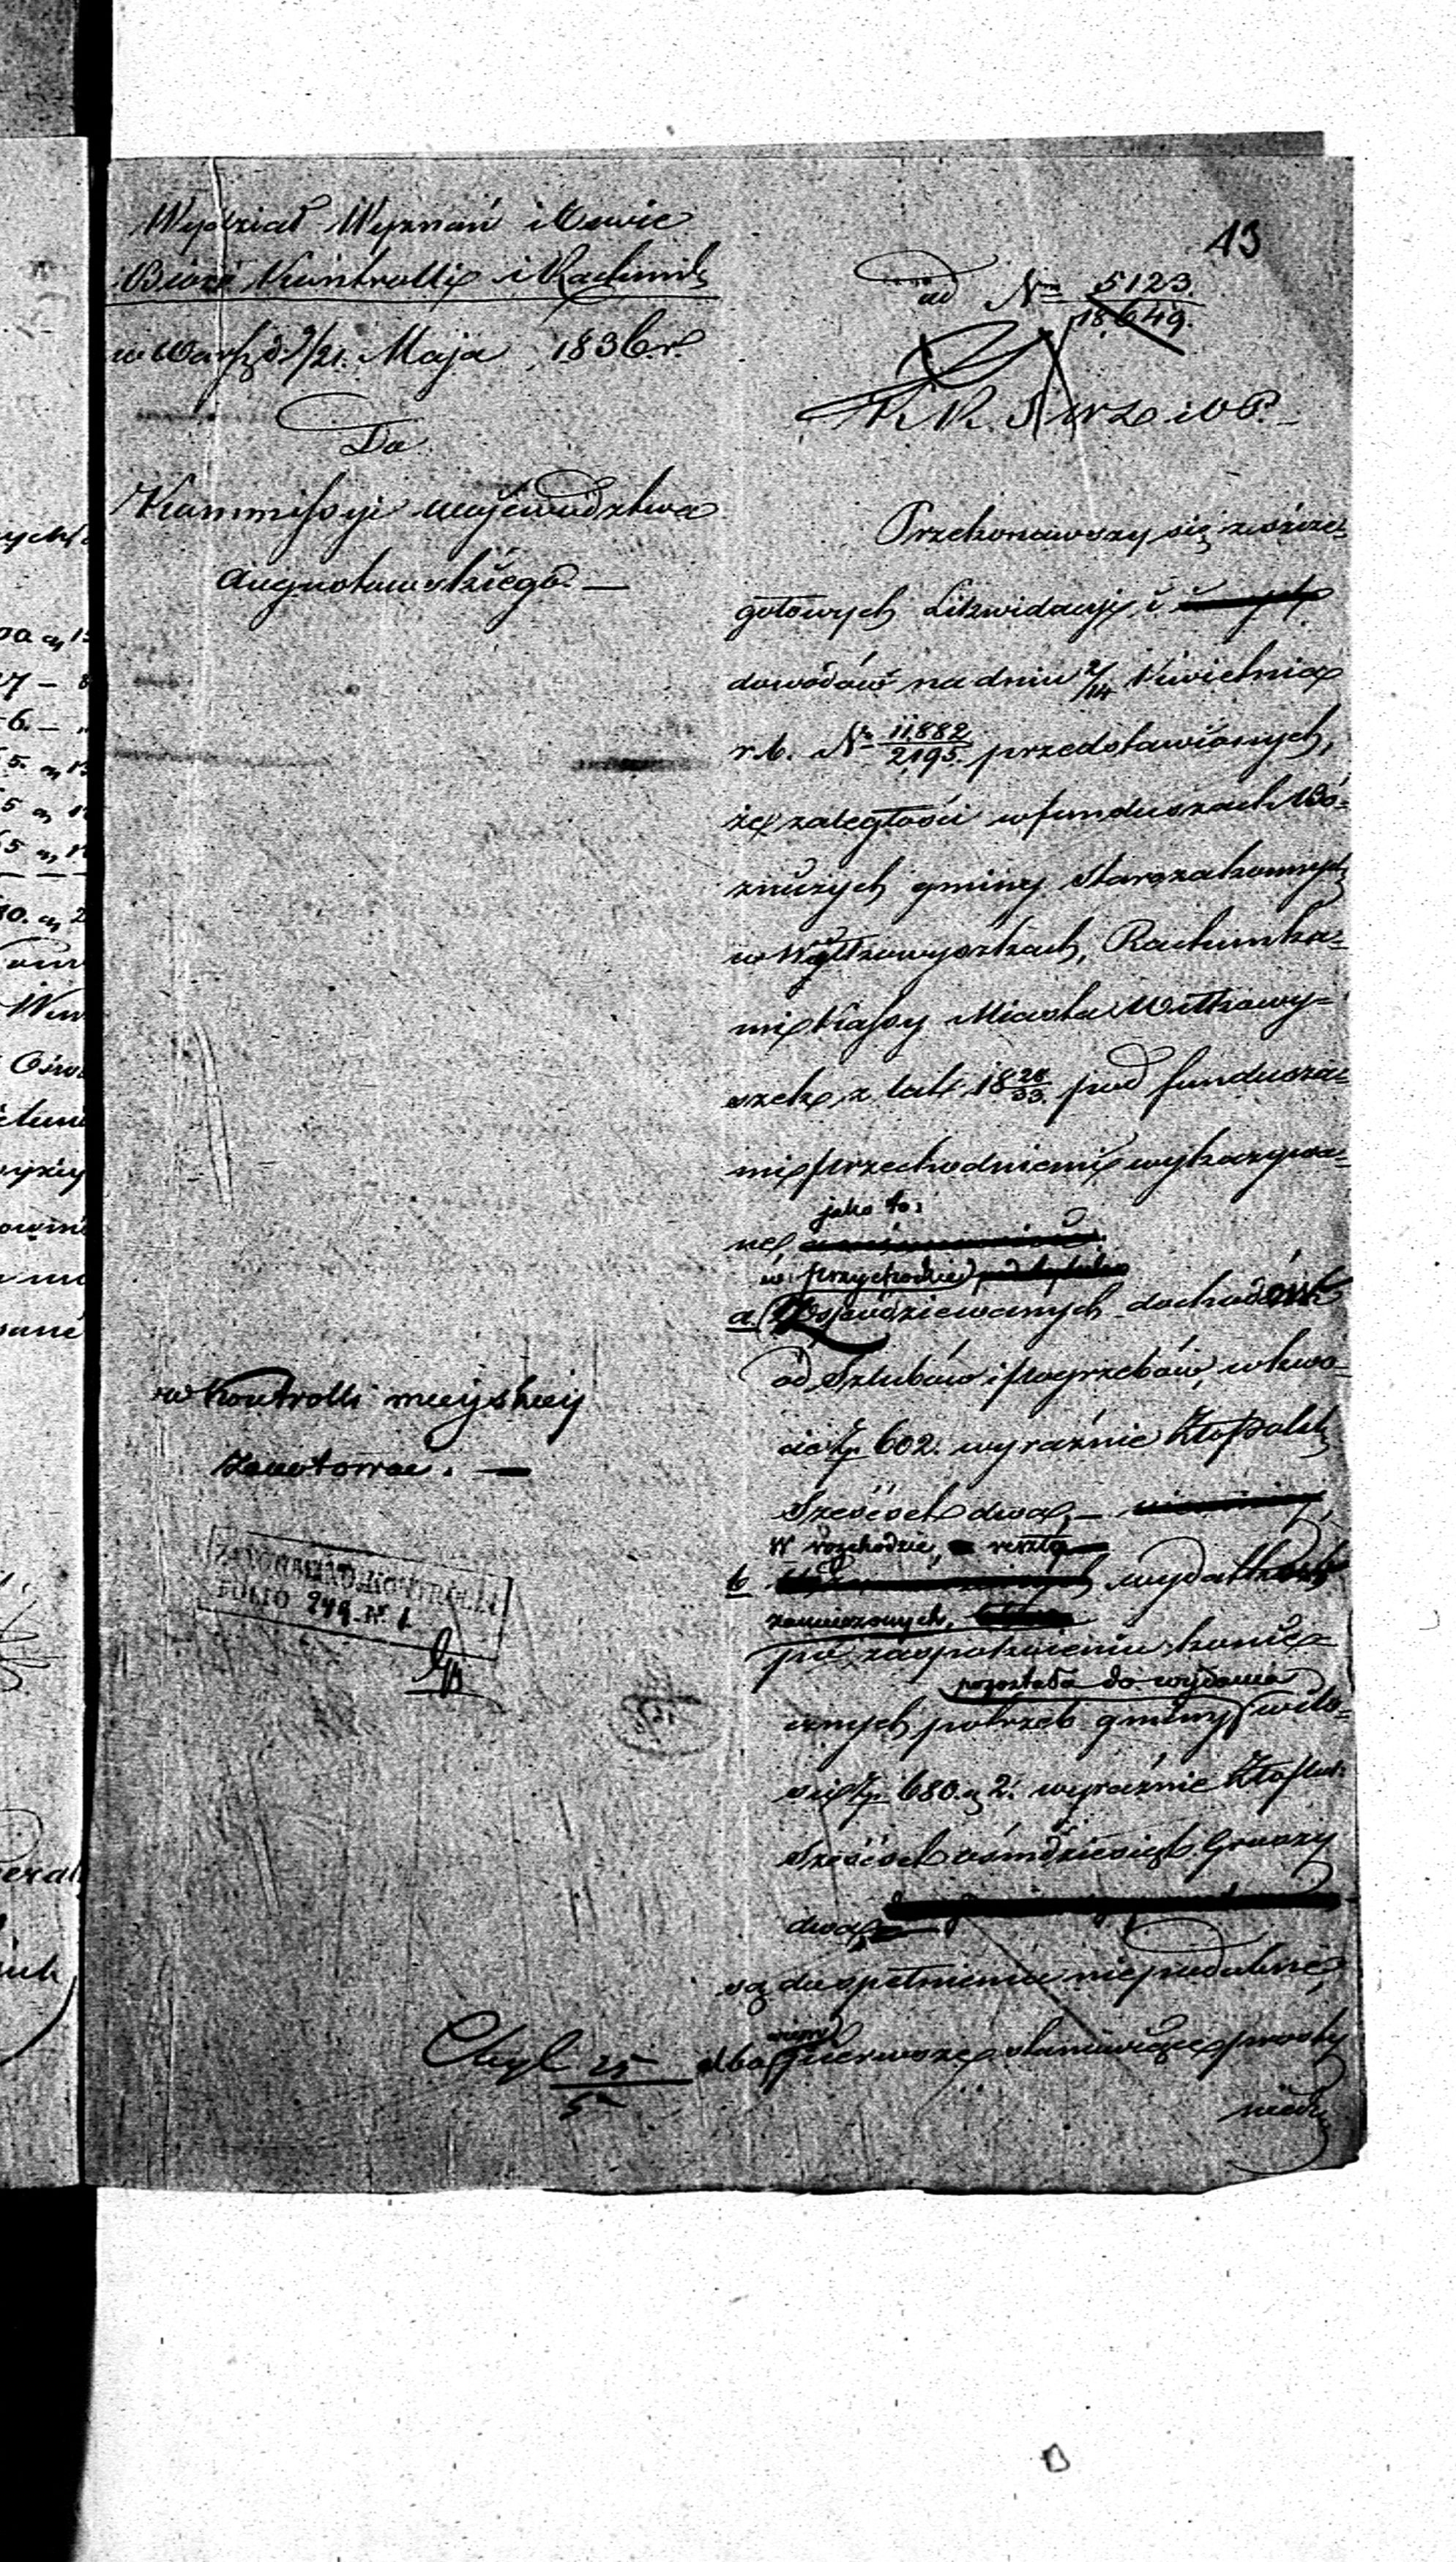 43
Wydział Wyznań i Oswie
Biuro Kontrolli i Rachunk
w Warsz d 9/21. Maja 1836.r.
Do
Kommissyi Województwa
Augustowskiego. —
ad Nrm 5123
18649.
K. R. S. W. D. i O. P. —
Przekonawszy się z szcze-
gółowych Likwidacyi i
dowodów na dniu 2/14 Kwietnia
r. b. Nr 11,882/2195. przedstawionych,
że zaległości w funduszach Bó-
zniczych gminy Starozakonnych
w Wyłkowyszkach, Rachunka-
mi Kassy Miasta Wiłkowy-
szek z lat 18 28/33. pod fundusza-
mi przechodniemi wykazywa-
ne jako to:
w przychodzie
a/ spodziewanych dochodów
od Szlubów i pogrzebów, w kwo-
cie Zp 602. wyraźnie Złot Polsk
Sześćset dwa, —
w rozchodzie, reszta
b wydatków
zamierzonych,
po zaspokoieniu konie-
pozostała do wydania
cznych potrzeb gminy w ilo-
ści Zp 680. g 2. wyraźnie Złot Pol:
Sześćset ośmdziesiąt Groszy
dwa,
są do spełnienia niepodobne,
albowiem pierwsze stanowiące prosty
niedo
w Kontrolli mieyskiey
zanotowane. —
ZANOTOWANO w KONTROLLI
FOLIO 249 Nr. 1.
25
5